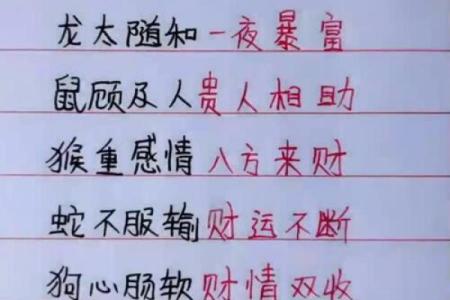 龙太随和一夜暴富
鼠顾及人贵人相助
猴重感情八方来财
蛇不服输财运不断
狗心肠软财情双收